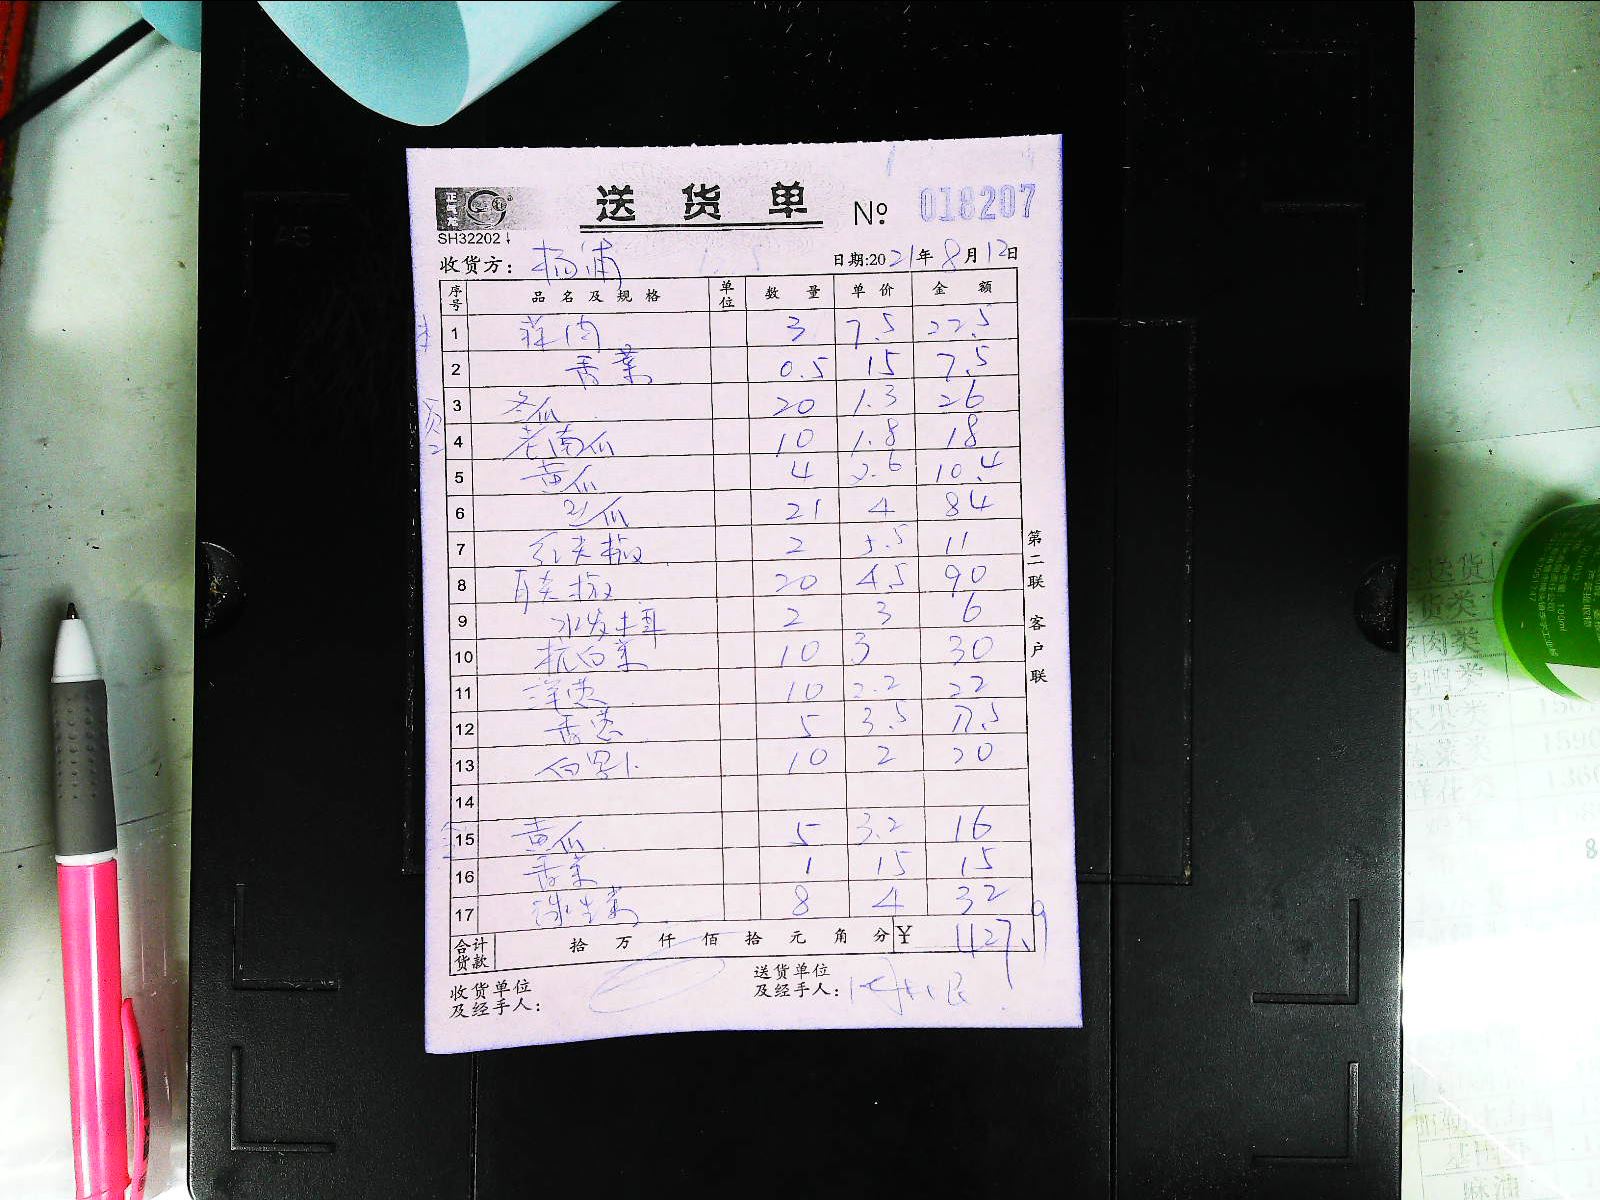 送货单 № 018207
SH32202
收货方: 杨浦 日期:2021年8月12日
序号 品名及规格 单位 数量 单价 金额
1 蒜肉 3 7.5 22.5
2 香菜 0.5 15 7.5
3 冬瓜 20 1.3 26
4 老南瓜 10 1.8 18
5 黄瓜 4 2.6 10.4
6 丝瓜 21 4 84
7 红尖椒 2 5.5 11
8 青尖椒 20 4.5 90
9 水发木耳 2 3 6
10 杭白菜 10 3 30
11 洋葱 10 2.2 22
12 香葱 5 3.5 17.5
13 白罗卜 10 2 20
14
15 黄瓜 5 3.2 16
16 香菜 1 15 15
17 球生菜 8 4 32
合计货款 拾万仟佰拾元角分 ¥ 427.9
收货单位及经手人:
送货单位及经手人:
第二联 客户联